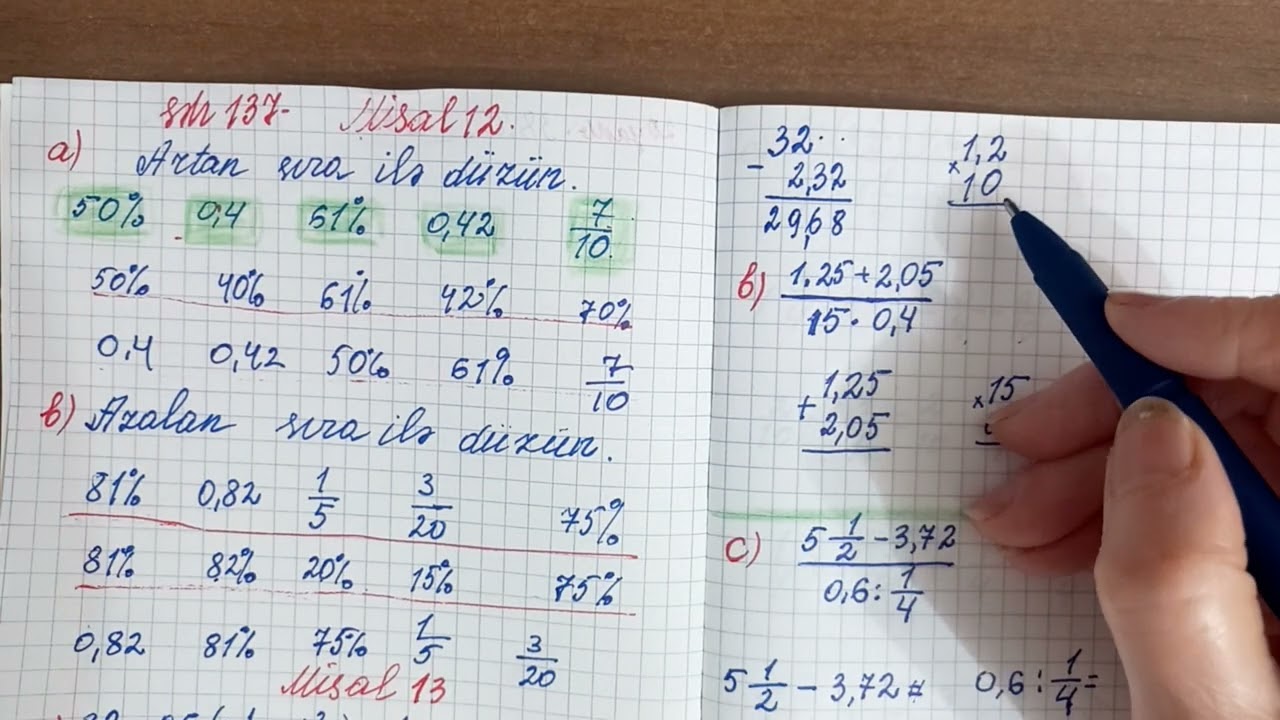 səh 137. Misal 12.
a) Artan sıra ilə düzün.
50% 0,4 61% 0,42 7/10
50% 40% 61% 42% 70%
0,4 0,42 50% 61% 7/10
b) Azalan sıra ilə düzün.
81% 0,82 1/5 3/20 75%
81% 82% 20% 15% 75%
0,82 81% 75% 1/5 3/20
Misal 13
32..
- 2,32
29,68
1,2
× 10
b) 1,25 + 2,05
15 · 0,4
1,25
+ 2,05
× 15
c) 5 1/2 - 3,72
0,6 : 1/4
5 1/2 - 3,72 =
0,6 : 1/4 =